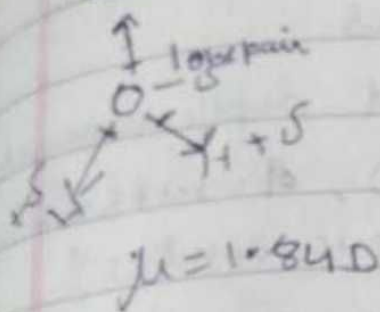 lone pair
O - δ
H + δ
+ δ
μ = 1.84 D